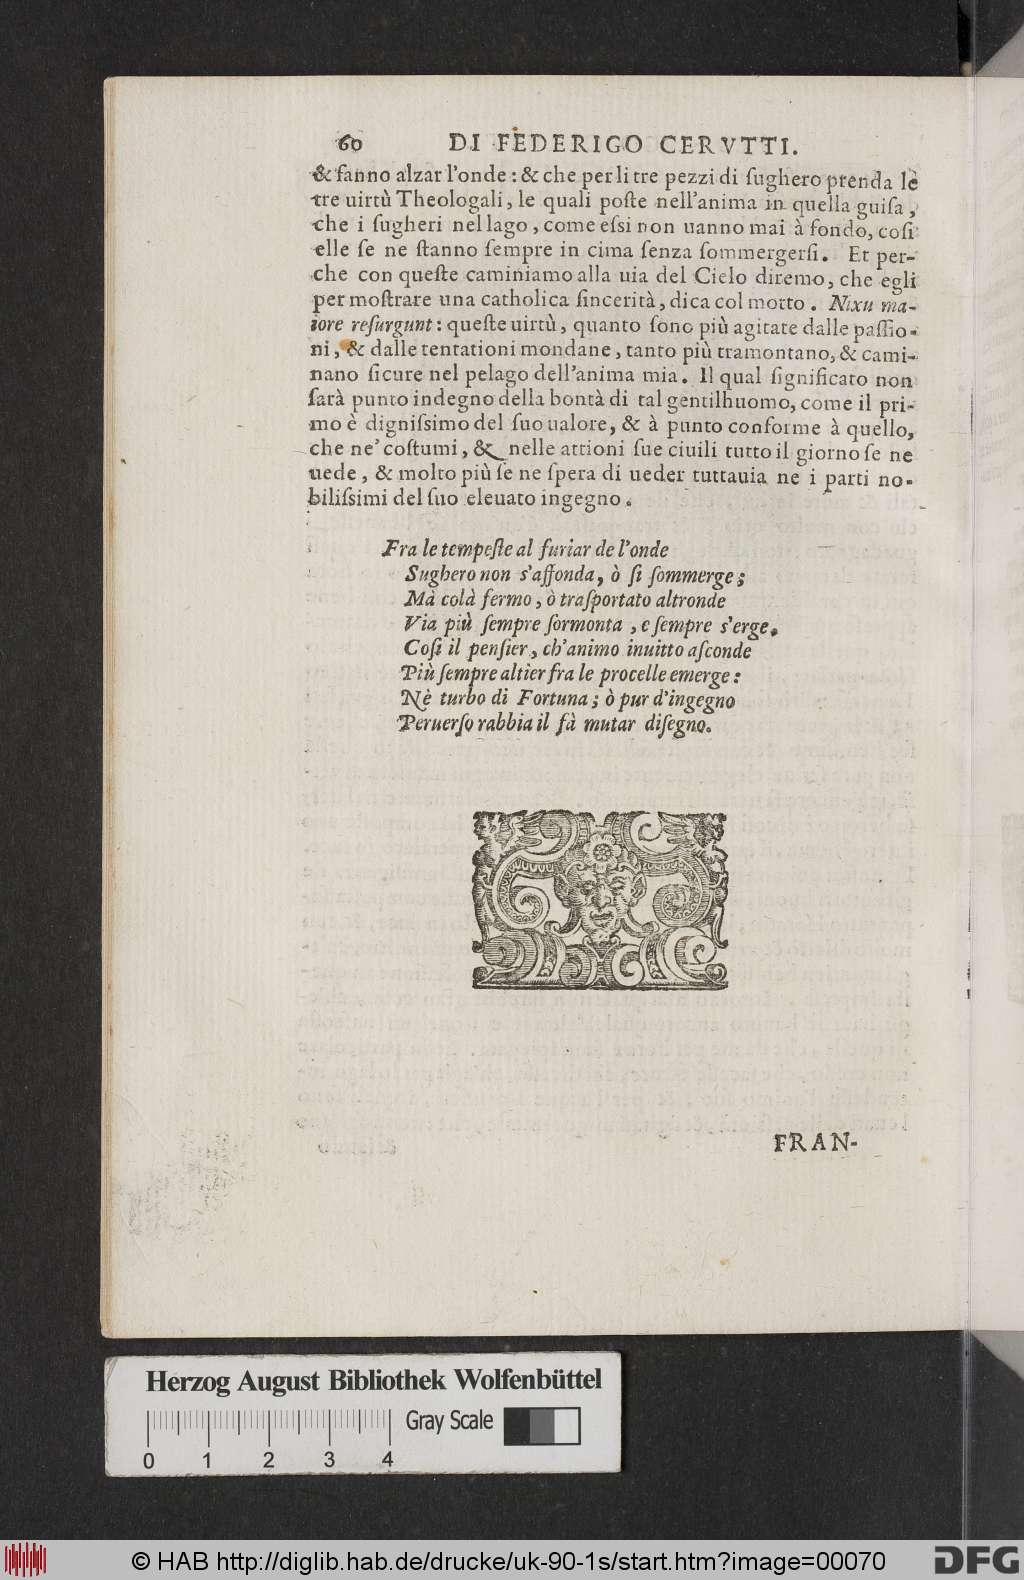 60 DI FEDERIGO CERVTTI.
& fanno alzar l'onde : & che per li tre pezzi di ſughero prenda le
tre uirtù Theologali, le quali poſte nell'anima in quella guiſa,
che i ſugheri nel lago, come eſsi non uanno mai à fondo, coſi
elle ſe ne ſtanno ſempre in cima ſenza ſommergerſi. Et per-
che con queſte caminiamo alla uia del Cielo diremo, che egli
per moſtrare una catholica ſincerità, dica col motto. Nixu ma-
iore reſurgunt: queſte uirtù, quanto ſono più agitate dalle paſſio-
ni, & dalle tentationi mondane, tanto più tramontano, & cami-
nano ſicure nel pelago dell'anima mia. Il qual ſignificato non
ſarà punto indegno della bontà di tal gentilhuomo, come il pri-
mo è digniſsimo del ſuo ualore, & à punto conforme à quello,
che ne' coſtumi, & nelle attioni ſue ciuili tutto il giorno ſe ne
uede, & molto più ſe ne ſpera di ueder tuttauia ne i parti no-
biliſsimi del ſuo eleuato ingegno.
Fra le tempeſte al furiar de l'onde
Sughero non s'affonda, ò ſi ſommerge;
Mà colà fermo, ò traſportato altronde
Via più ſempre ſormonta, e ſempre s'erge.
Coſi il penſier, ch'animo inuitto aſconde
Più ſempre altier fra le procelle emerge:
Nè turbo di Fortuna; ò pur d'ingegno
Peruerſo rabbia il fà mutar diſegno.
FRAN-
Herzog August Bibliothek Wolfenbüttel
Gray Scale
0 1 2 3 4
© HAB http://diglib.hab.de/drucke/uk-90-1s/start.htm?image=00070
DFG